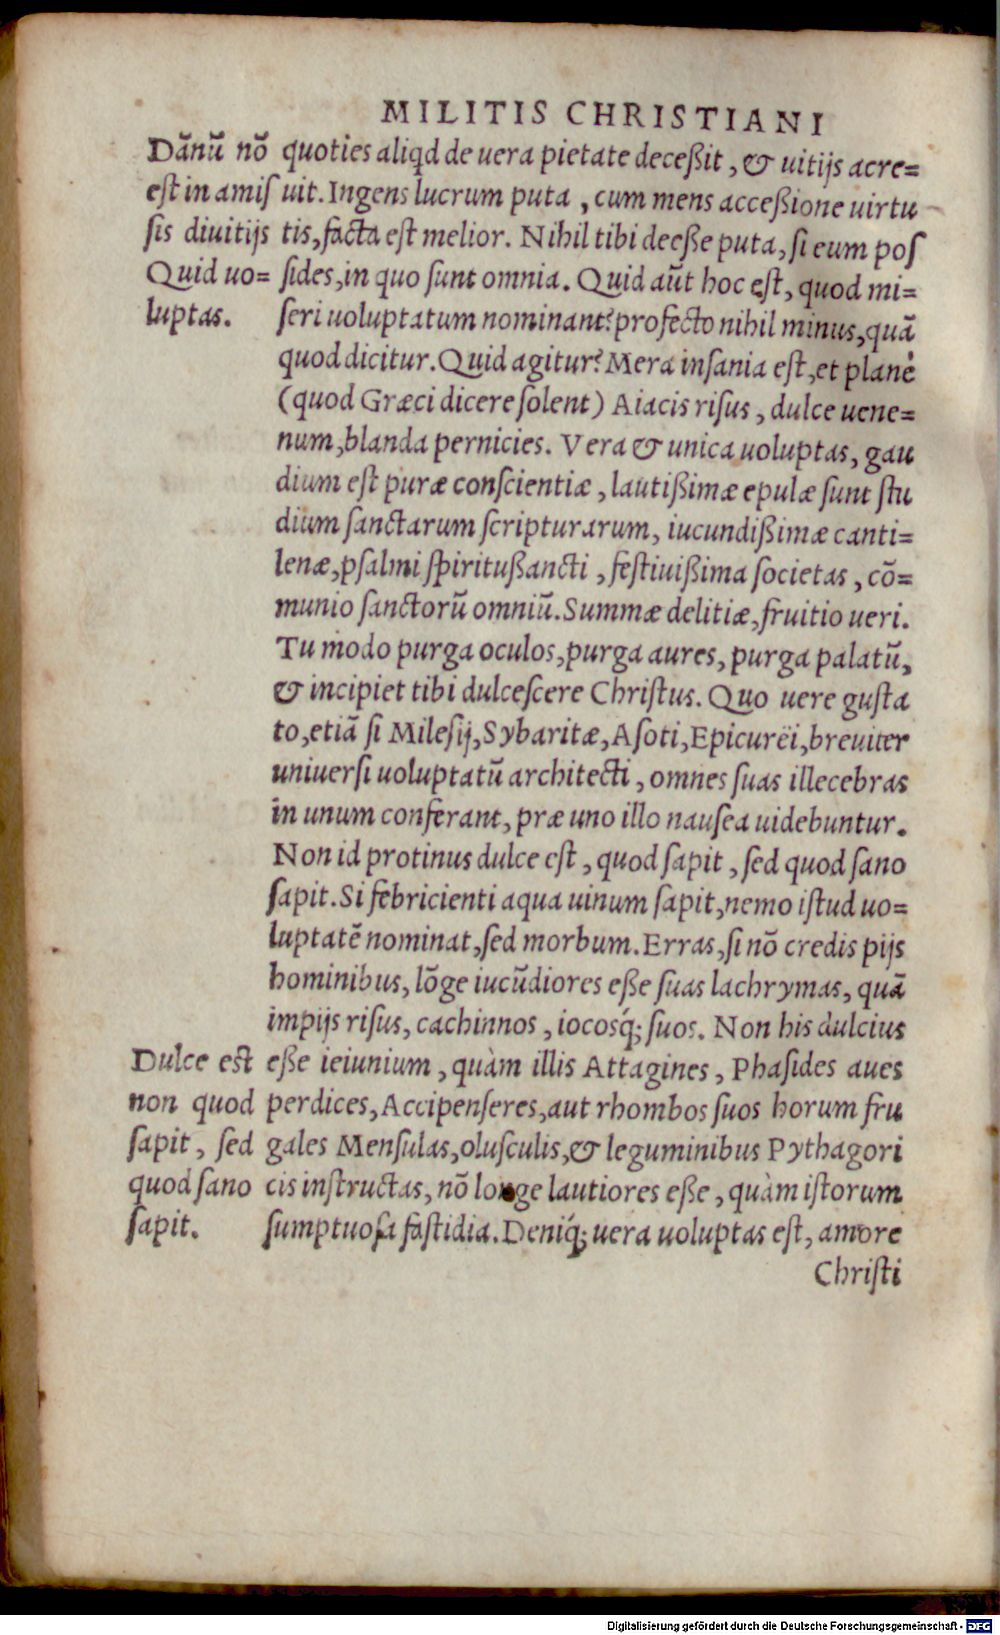 MILITIS CHRISTIANI
Dãnũ nõ
est in amiſ
ſis diuitijs
Quid uo=
luptas.
quoties aliqd de uera pietate deceßit, & uitijs acre=
uit. Ingens lucrum puta, cum mens acceßione uirtu
tis, facta est melior. Nihil tibi deeße puta, ſi eum poſ
ſides, in quo ſunt omnia. Quid aũt hoc est, quod mi=
ſeri uoluptatum nominant? profecto nihil minus, quã
quod dicitur. Quid agitur? Mera inſania eſt, et planè
(quod Græci dicere ſolent) Aiacis riſus, dulce uene=
num, blanda pernicies. Vera & unica uoluptas, gau
dium eſt puræ conſcientiæ, lautißimæ epulæ ſunt ſtu
dium ſanctarum ſcripturarum, iucundißimæ canti=
lenæ, pſalmi ſpiritußancti, feſtiuißima ſocietas, cõ=
munio ſanctorũ omniũ. Summæ delitiæ, fruitio ueri.
Tu modo purga oculos, purga aures, purga palatũ,
& incipiet tibi dulceſcere Chriſtus. Quo uere guſta
to, etiã ſi Mileſij, Sybaritæ, Aſoti, Epicurëi, breuiter
uniuerſi uoluptatũ architecti, omnes ſuas illecebras
in unum conferant, præ uno illo nauſea uidebuntur.
Non id protinus dulce eſt, quod ſapit, ſed quod ſano
ſapit. Si febricienti aqua uinum ſapit, nemo iſtud uo=
luptatẽ nominat, ſed morbum. Erras, ſi nõ credis pijs
hominibus, lõge iucũdiores eße ſuas lachrymas, quã
impijs riſus, cachinnos, iocosq́; ſuos. Non his dulcius
eße ieiunium, quàm illis Attagines, Phaſides aues
perdices, Accipenſeres, aut rhombos ſuos horum fru
gales Menſulas, oluſculis, & leguminibus Pythagori
cis inſtructas, nõ longe lautiores eße, quàm iſtorum
ſumptuoſa faſtidia. Deniq́; uera uoluptas eſt, amore
Dulce est
non quod
ſapit, ſed
quod ſano
ſapit.
Chriſti
Digitalisierung gefördert durch die Deutsche Forschungsgemeinschaft - DFG